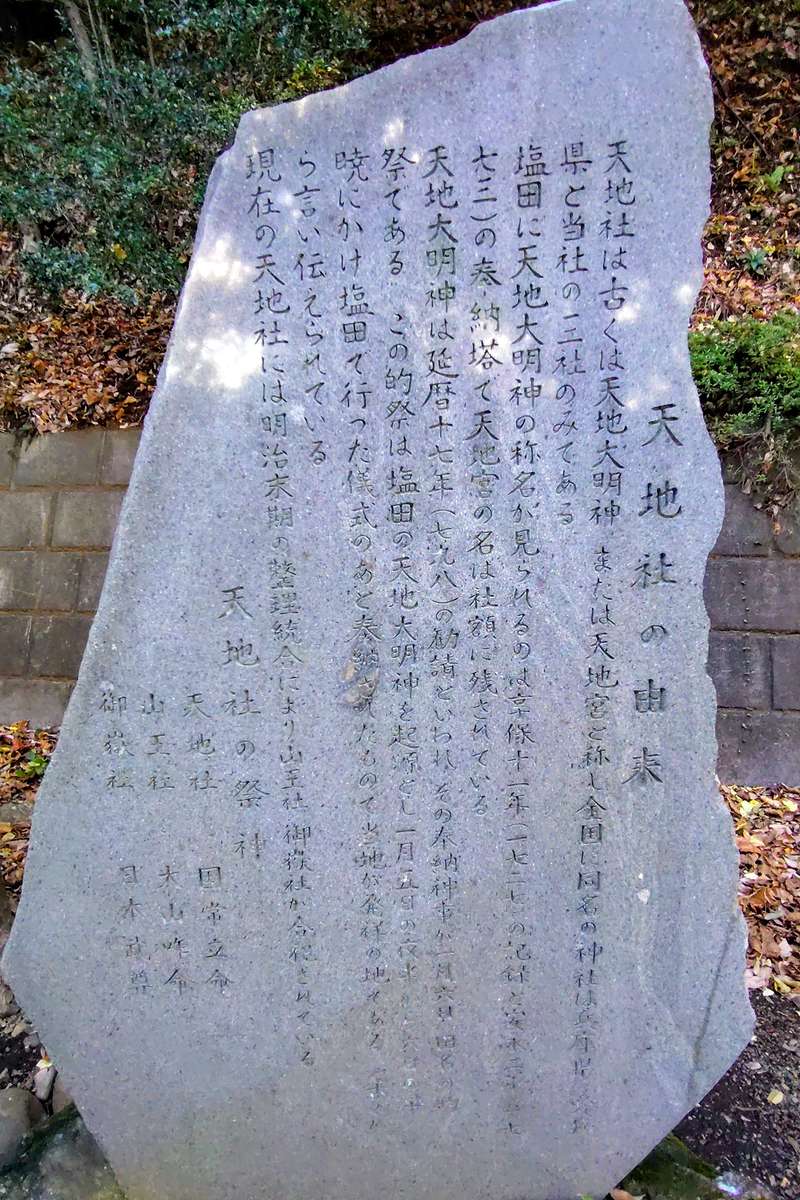 天地社の由来
天地社は古くは天地大明神 または天地宮と称し全国に同名の神社は兵庫県
県と当社の三社のみである
塩田に天地大明神の称名が見られるのは享保十二年(一七二七)の記録と安永二年(一七
七三)の奉納塔で天地宮の名は社額に残されている
天地大明神は延暦十七年(七九八)の勧請といわれ その奉納神事が一月六日 田名の的
祭である この的祭は塩田の天地大明神を起源とし一月五日の夜半から六日の
暁にかけ塩田で行った儀式のあと奉納されたもので 当地が発祥の地である
ら言い伝えられている
現在の天地社には明治末期の整理統合により山王社 御嶽社が合祀されている
天地社の祭神
天地社 国常立命
山王社 大山咋命
御嶽社 日本武尊